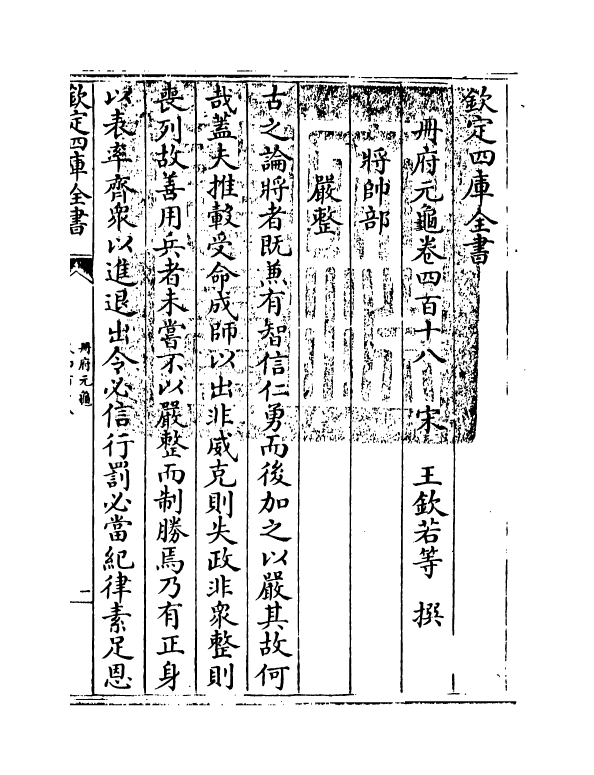 欽定四庫全書
冊府元龜卷四百十八 宋 王欽若等 撰
將帥部
嚴整
古之論將者既兼有智信仁勇而後加之以嚴其故何
哉蓋夫推轂受命成師以出非威克則失政非衆整則
喪列故善用兵者未嘗不以嚴整而制勝焉乃有正身
以表率齊衆以進退出令必信行罰必當紀律素足恩
欽定四庫全書
冊府元龜
一